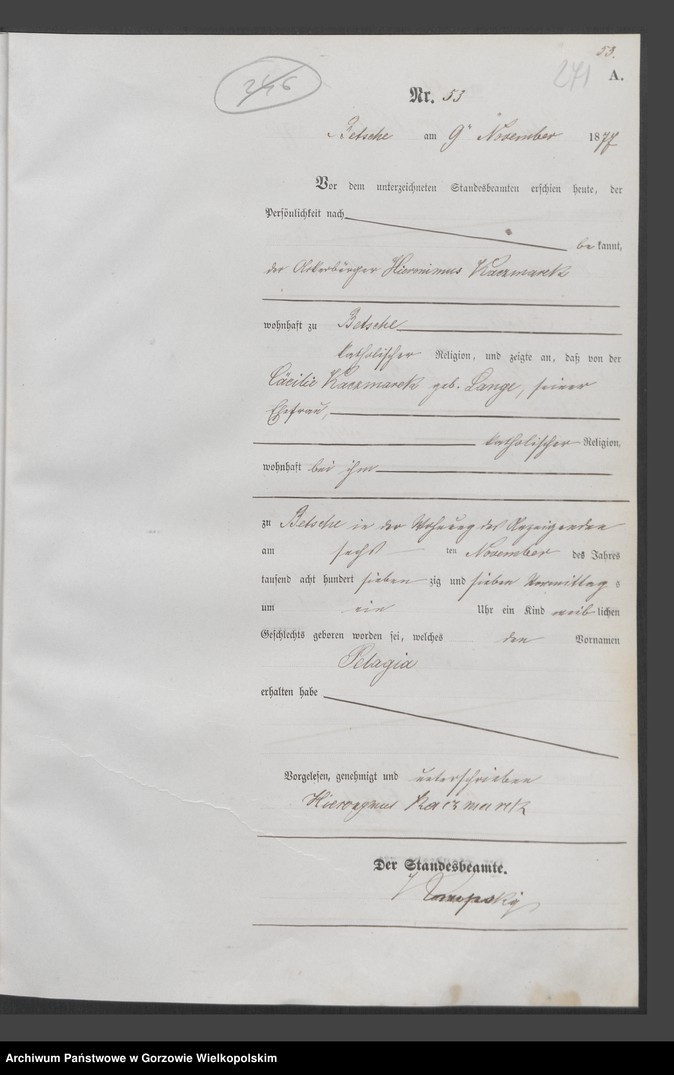 53.
246
271
A.
Nr. 53
Betsche am 9ⁿ November 1877
Vor dem unterzeichneten Standesbeamten erschien heute, der
Persönlichkeit nach
be kannt,
der Ackerbürger Hieronimus Kaczmarek
wohnhaft zu Betsche
katholischer Religion, und zeigte an, daß von der
Cäcilie Kaczmarek geb. Lange, seiner
Ehefrau,
katholischer Religion,
wohnhaft bei ihm
zu Betsche in der Wohnung des Anzeigenden
am sechs ten November des Jahres
tausend acht hundert sieben zig und sieben Vormittag s
um ein Uhr ein Kind weib lichen
Geschlechts geboren worden sei, welches den Vornamen
Pelagia
erhalten habe
Vorgelesen, genehmigt und unterschrieben
Kaczmarek
Der Standesbeamte.
Archiwum Państwowe w Gorzowie Wielkopolskim